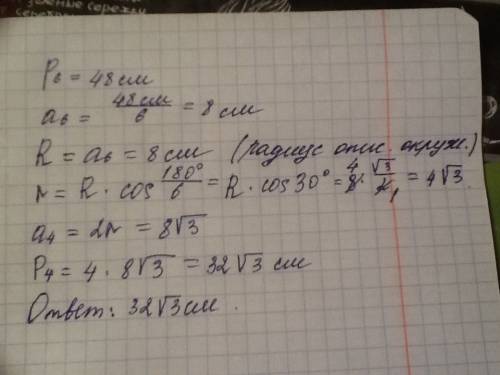 зоёные серёжки
P₆ = 48 см
a₆ = 48см/6 = 8 см
R = a₆ = 8 см (радиус опис. окруж.)
r = R · cos 180°/6 = R · cos 30° = 8⁴ · √3/2₁ = 4√3
a₄ = 2r = 8√3
P₄ = 4 · 8√3 = 32√3 см
Ответ: 32√3 см.